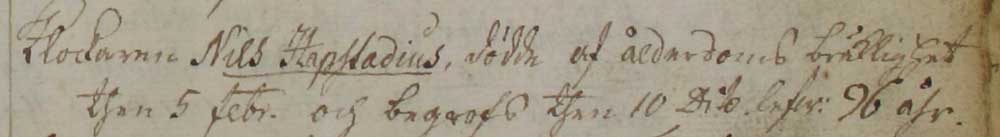 Klockaren Nils Hapstadius, dödde af ålderdoms bräklighet
then 5 febr. och begrofs then 10 Dito. lefw: 96 åhr.